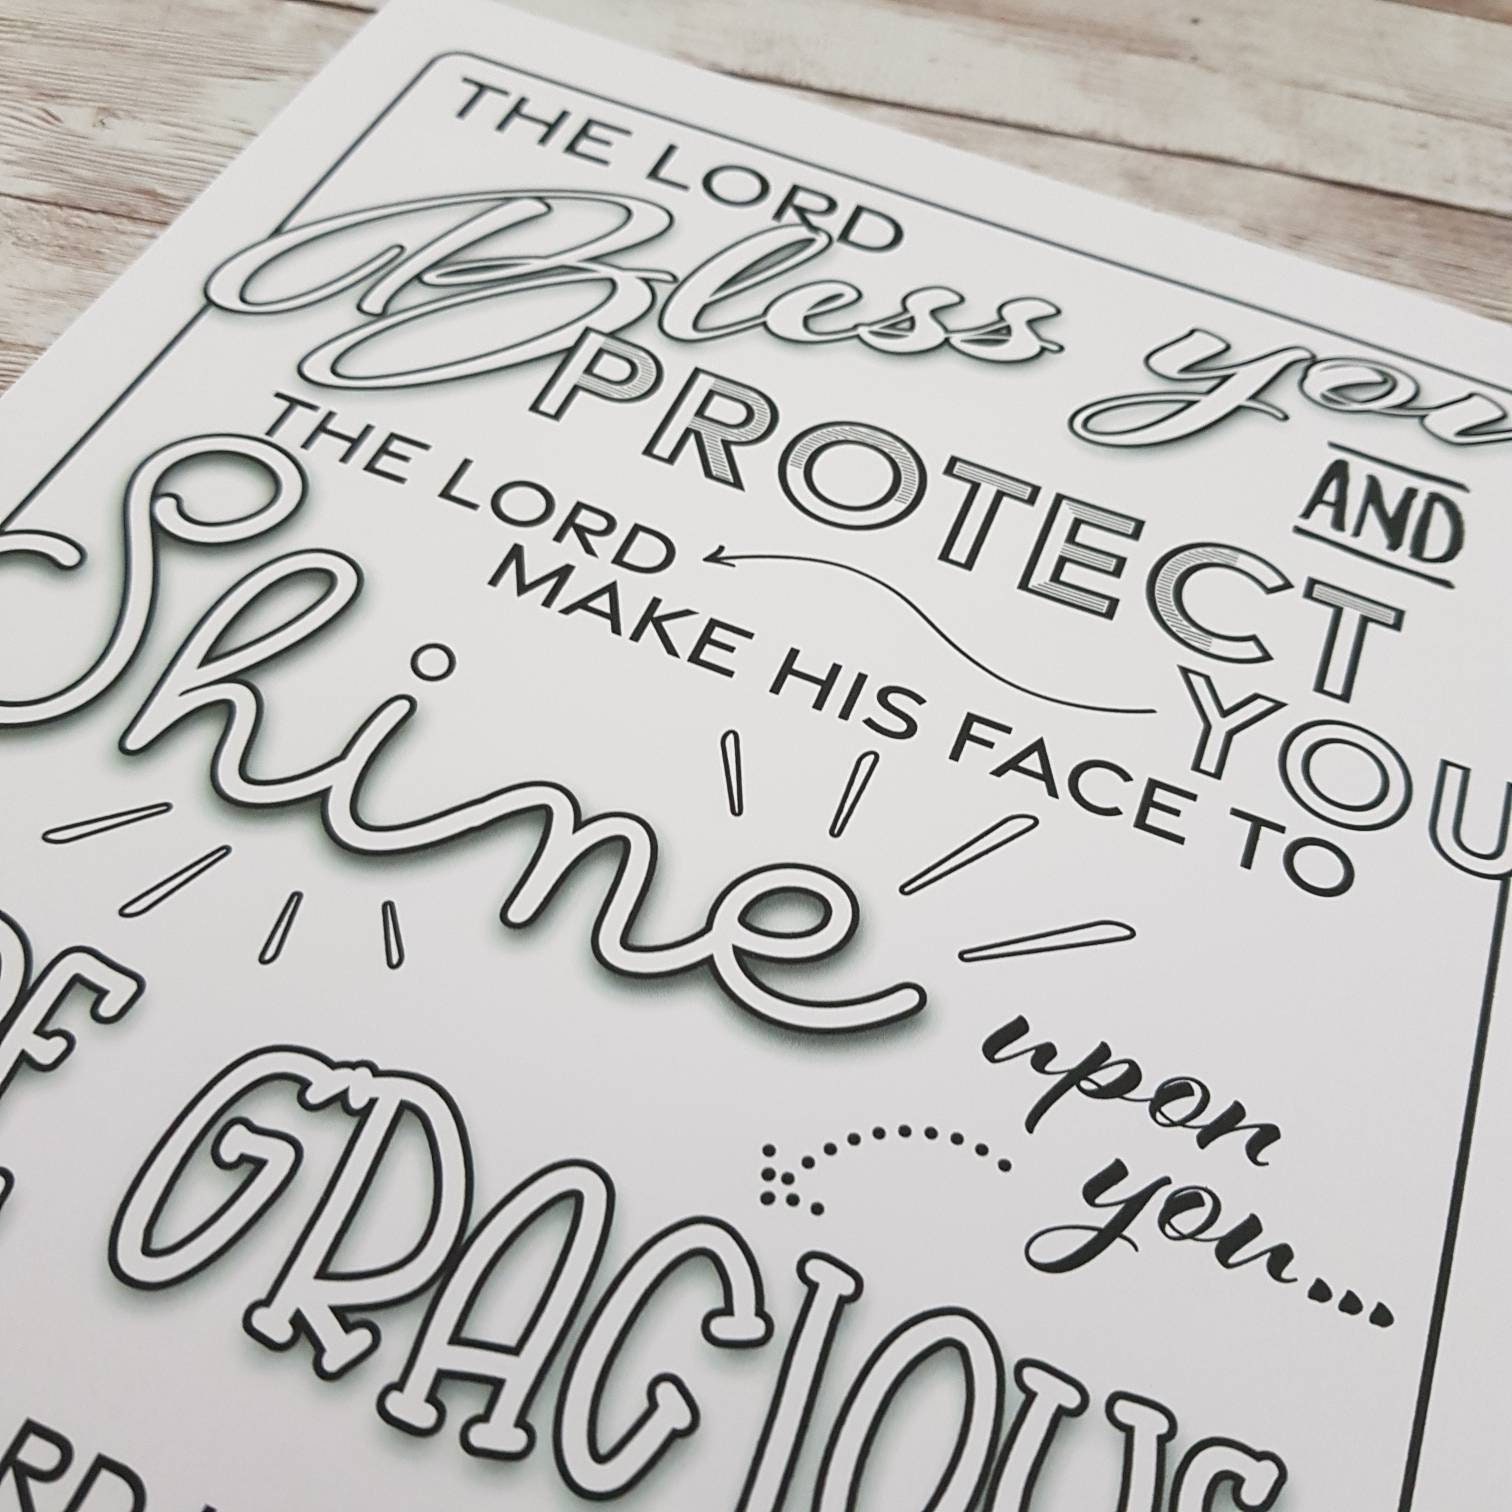 THE LORD
Bless you
AND
PROTECT
YOU
THE LORD
MAKE HIS FACE TO
Shine
upon
you...
GRACIOUS